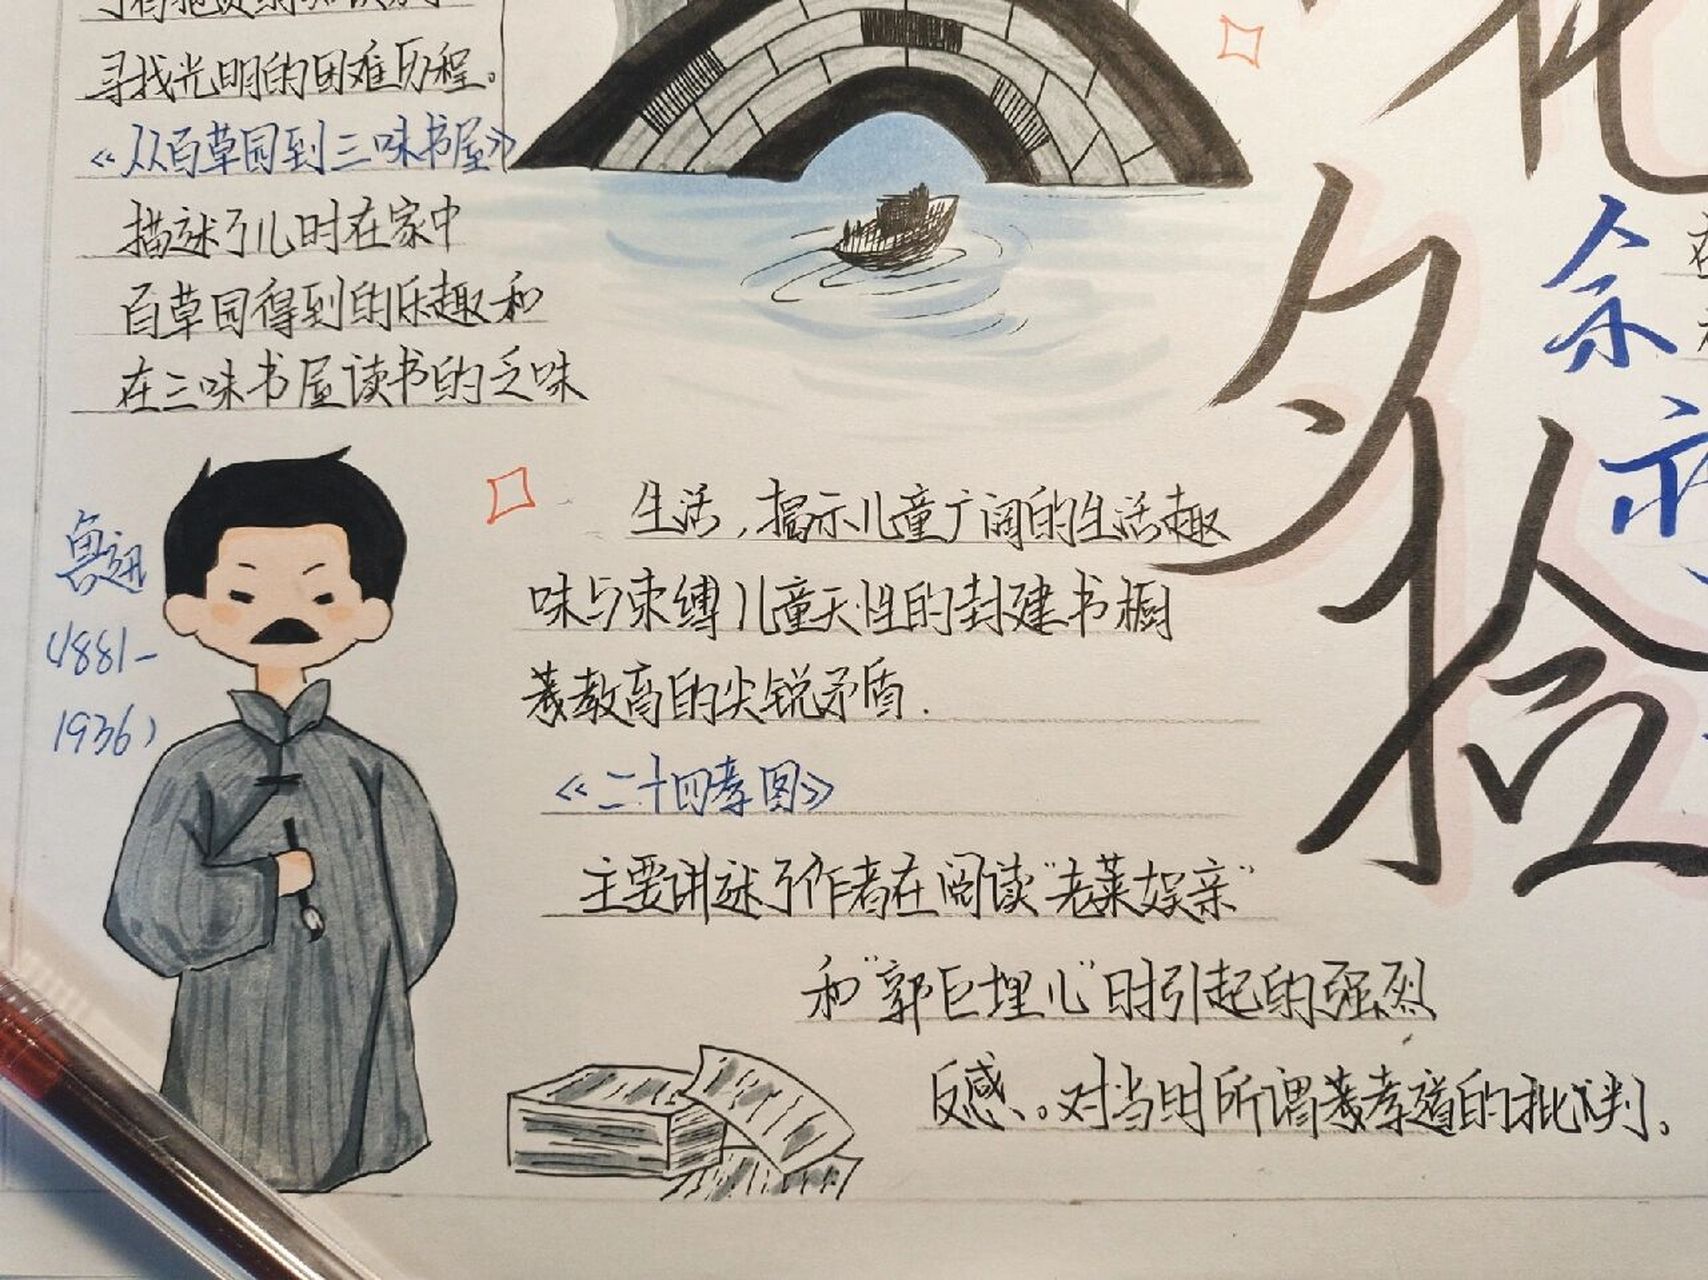 寻找光明的困难历程。
《从百草园到三味书屋》
描述了儿时在家中
百草园得到的乐趣和
在三味书屋读书的乏味
鲁迅
(1881-
1936)
生活,揭示儿童广阔的生活趣
味与束缚儿童天性的封建书橱
教育的尖锐矛盾.
《二十四孝图》
主要讲述了作者在阅读“老莱娱亲”
和“郭巨埋儿”时引起的强烈
反感。对当时所谓孝道的批判。
花
夕
拾